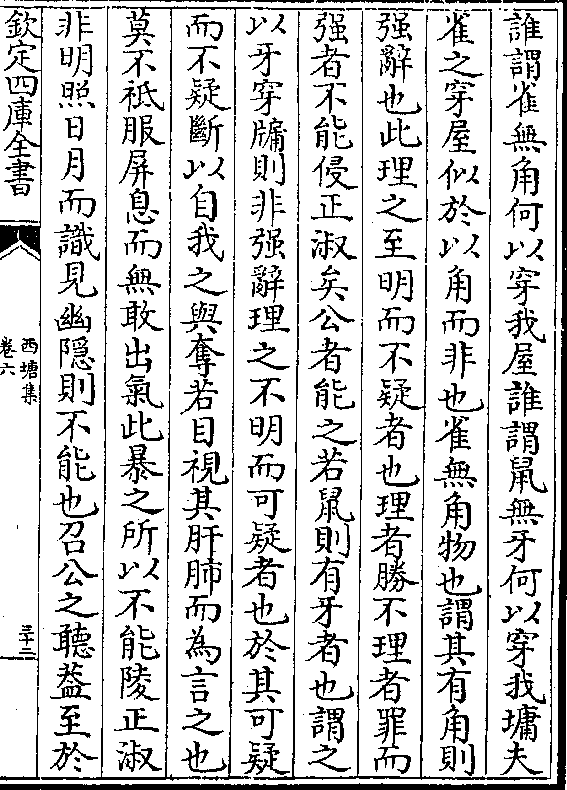 誰謂雀無角何以穿我屋誰謂鼠無牙何以穿我墉夫
雀之穿屋似於以角而非也雀無角物也謂其有角則
强辭也此理之至明而不疑者也理者勝不理者罪而
强者不能侵正淑矣公者能之若鼠則有牙者也謂之
以牙穿牗則非强辭理之不明而可疑者也於其可疑
而不疑斷以自我之與奪若目視其肝肺而為言之也
莫不祗服屏息而無敢出氣此暴之所以不能陵正淑
非明照日月而識見幽隠則不能也召公之聽葢至於
欽定四庫全書
西塘集
卷六
三十二